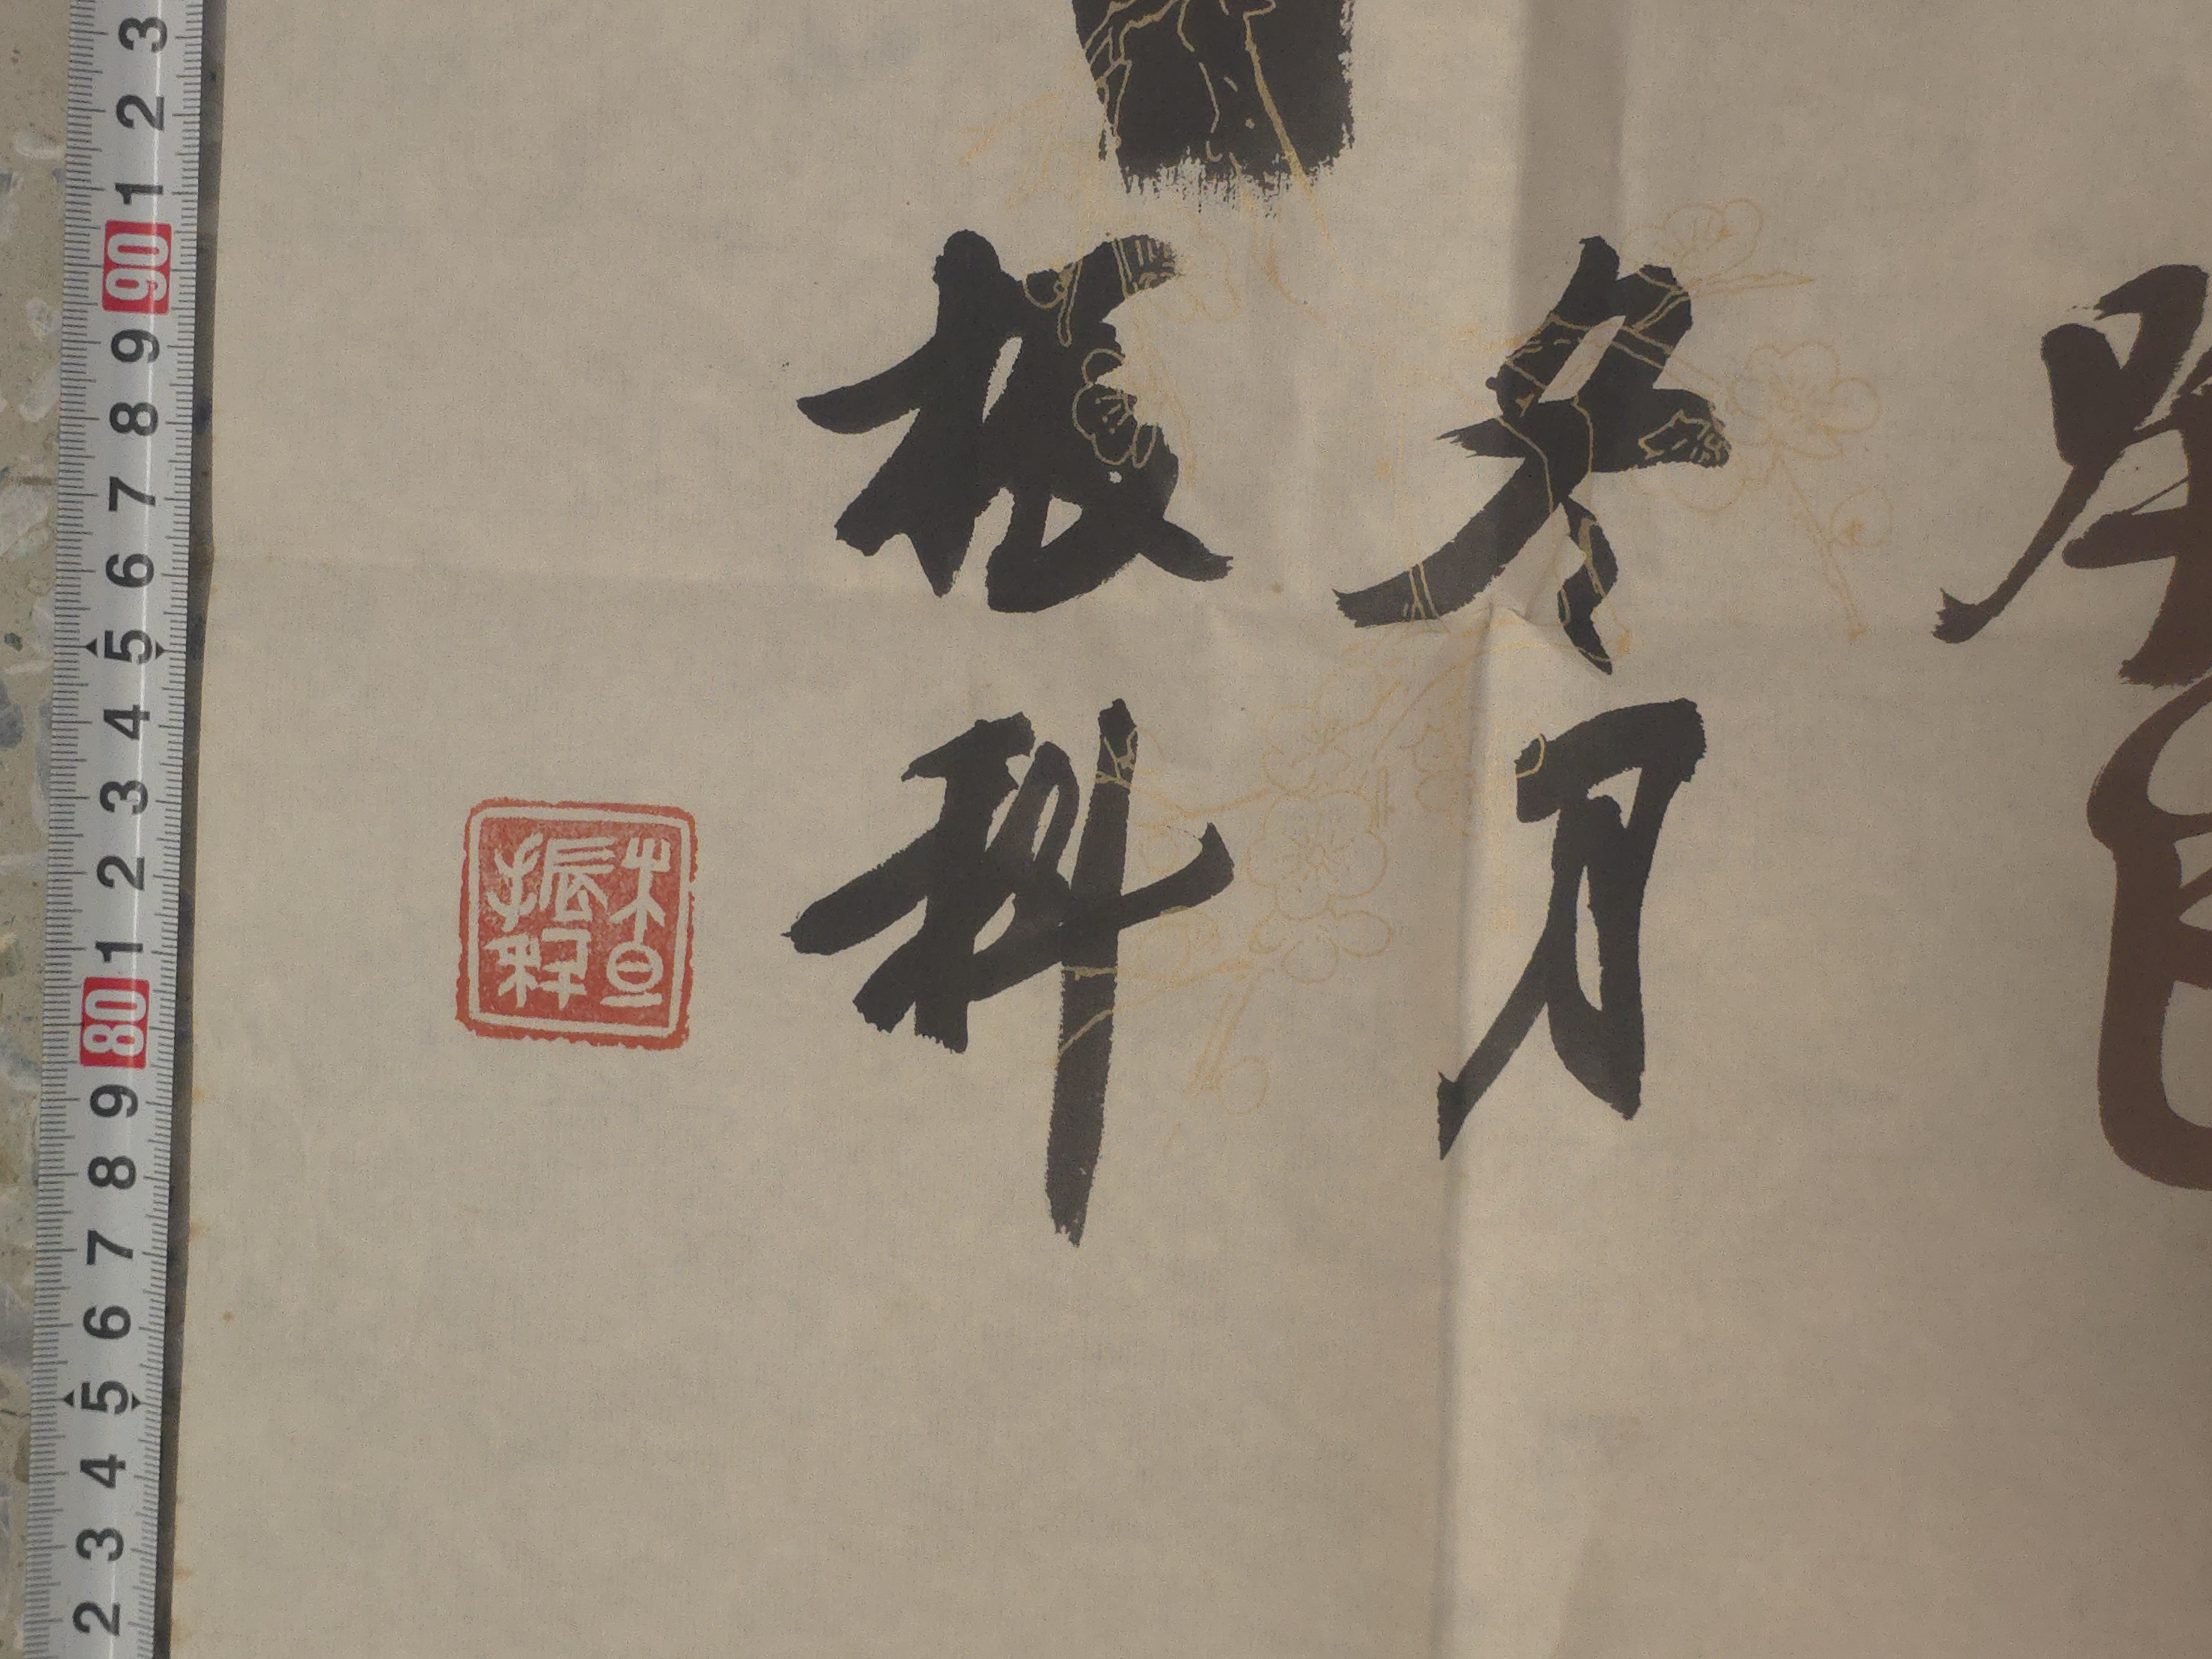 冬月
振科
查振科
3
2
1
90
9
8
7
6
5
4
3
2
1
80
9
8
7
6
5
4
3
2